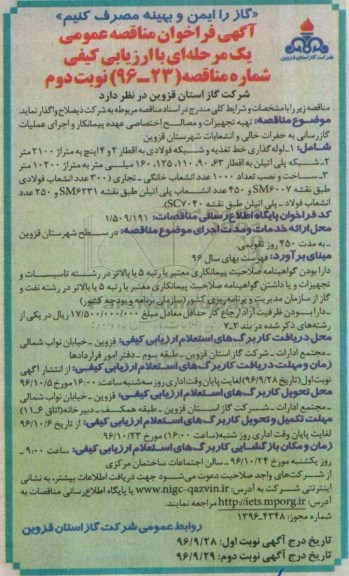 «گاز را ایمن و بهینه مصرف کنیم»
شرکت گاز استان قزوین
آگهی فراخوان مناقصه عمومی
یک مرحله‌ای با ارزیابی کیفی
شماره مناقصه (۲۳-۹۶) نوبت دوم
شرکت گاز استان قزوین در نظر دارد
مناقصه زیر را با مشخصات و شرایط کلی مندرج در اسناد مناقصه مربوطه به شرکت ذیصلاح واگذار نماید.
موضوع مناقصه: تهیه تجهیزات و مصالح اختصاصی عهده پیمانکار و اجرای عملیات
گازرسانی به حفرات خالی و انشعابات شهرستان قزوین
شامل: ۱-لوله گذاری خط تغذیه و شبکه فولادی به اقطار ۲ و ۴ اینچ به متراژ ۲۱۰۰ متر
۲-شبکه پلی اتیلن به اقطار ۶۳، ۹۰، ۱۱۰، ۱۲۵، ۱۶۰ میلی متر به متراژ ۱۰۲۰۰ متر
۳-ساخت و نصب تعداد ۱۰۰۰ عدد انشعاب خانگی - تجاری (۳۰۰ عدد انشعاب فولادی
طبق نقشه SM۶۰۰۷ و ۴۵۰ عدد انشعاب پلی اتیلن طبق نقشه SM۶۲۳۱ و ۲۵۰ عدد
انشعاب فولاد - پلی اتیلن طبق نقشه SC۷۰۴۰).
کد فراخوان پایگاه اطلاع رسانی مناقصات: ۱/۵۰۹/۱۹۱
محل ارائه خدمات و مدت اجرای موضوع مناقصه: در سطح شهرستان قزوین
- به مدت ۴۵۰ روز تقویمی.
مبنای برآورد: فهرست بهای سال ۹۶
دارا بودن گواهینامه صلاحیت پیمانکاری معتبر با رتبه ۵ یا بالاتر در رشته تاسیسات و
تجهیزات و یا داشتن گواهینامه صلاحیت پیمانکاری معتبر با رتبه ۵ یا بالاتر در رشته نفت و
گاز از سازمان مدیریت و برنامه ریزی کشور (سازمان برنامه و بودجه کشور)
- دارا بودن ظرفیت آزاد ارجاع کار حداقل معادل مبلغ ۱۷/۵۰۰/۰۰۰/۰۰۰ ریال در یکی از
رشته‌های ذکر شده در بند ۲-۷
محل دریافت کاربرگ‌های استعلام ارزیابی کیفی: قزوین - خیابان نواب شمالی
- مجتمع ادارات - شرکت گاز استان قزوین - طبقه سوم - دفتر امور قراردادها
زمان و مهلت دریافت کاربرگ‌های استعلام ارزیابی کیفی: از انتشار آگهی
نوبت اول (تاریخ ۹۶/۹/۲۸) لغایت پایان وقت اداری روز سه‌شنبه ساعت: ۱۶:۰۰ مورخ ۹۶/۱۰/۵
محل تحویل کاربرگ‌های استعلام ارزیابی کیفی: قزوین - خیابان نواب شمالی
- مجتمع ادارات - شرکت گاز استان قزوین - طبقه همکف - دبیرخانه (اتاق ۶-۱۱)
مهلت تکمیل و تحویل کاربرگ‌های استعلام ارزیابی کیفی: از تاریخ ۹۶/۱۰/۶
لغایت پایان وقت اداری روز شنبه (ساعت ۱۶:۰۰) مورخ ۹۶/۱۰/۲۳
زمان و مکان بازگشایی کاربرگ‌های استعلام ارزیابی کیفی: ساعت ۹:۰۰
روز یکشنبه مورخ ۹۶/۱۰/۲۴ - سالن اجتماعات ساختمان مرکزی
از شرکت‌های واجد صلاحیت دعوت می‌شود جهت دریافت اطلاعات بیشتر، به نشانی
اینترنتی شرکت به آدرس: www.nigc-qazvin.ir یا پایگاه اطلاع رسانی مناقصات به
آدرس: http://iets.mporg.ir مراجعه نمایند.
شماره مجوز: ۱۳۹۶-۴۳۴۸
روابط عمومی شرکت گاز استان قزوین
تاریخ درج آگهی نوبت اول: ۹۶/۹/۲۸
تاریخ درج آگهی نوبت دوم: ۹۶/۹/۲۹